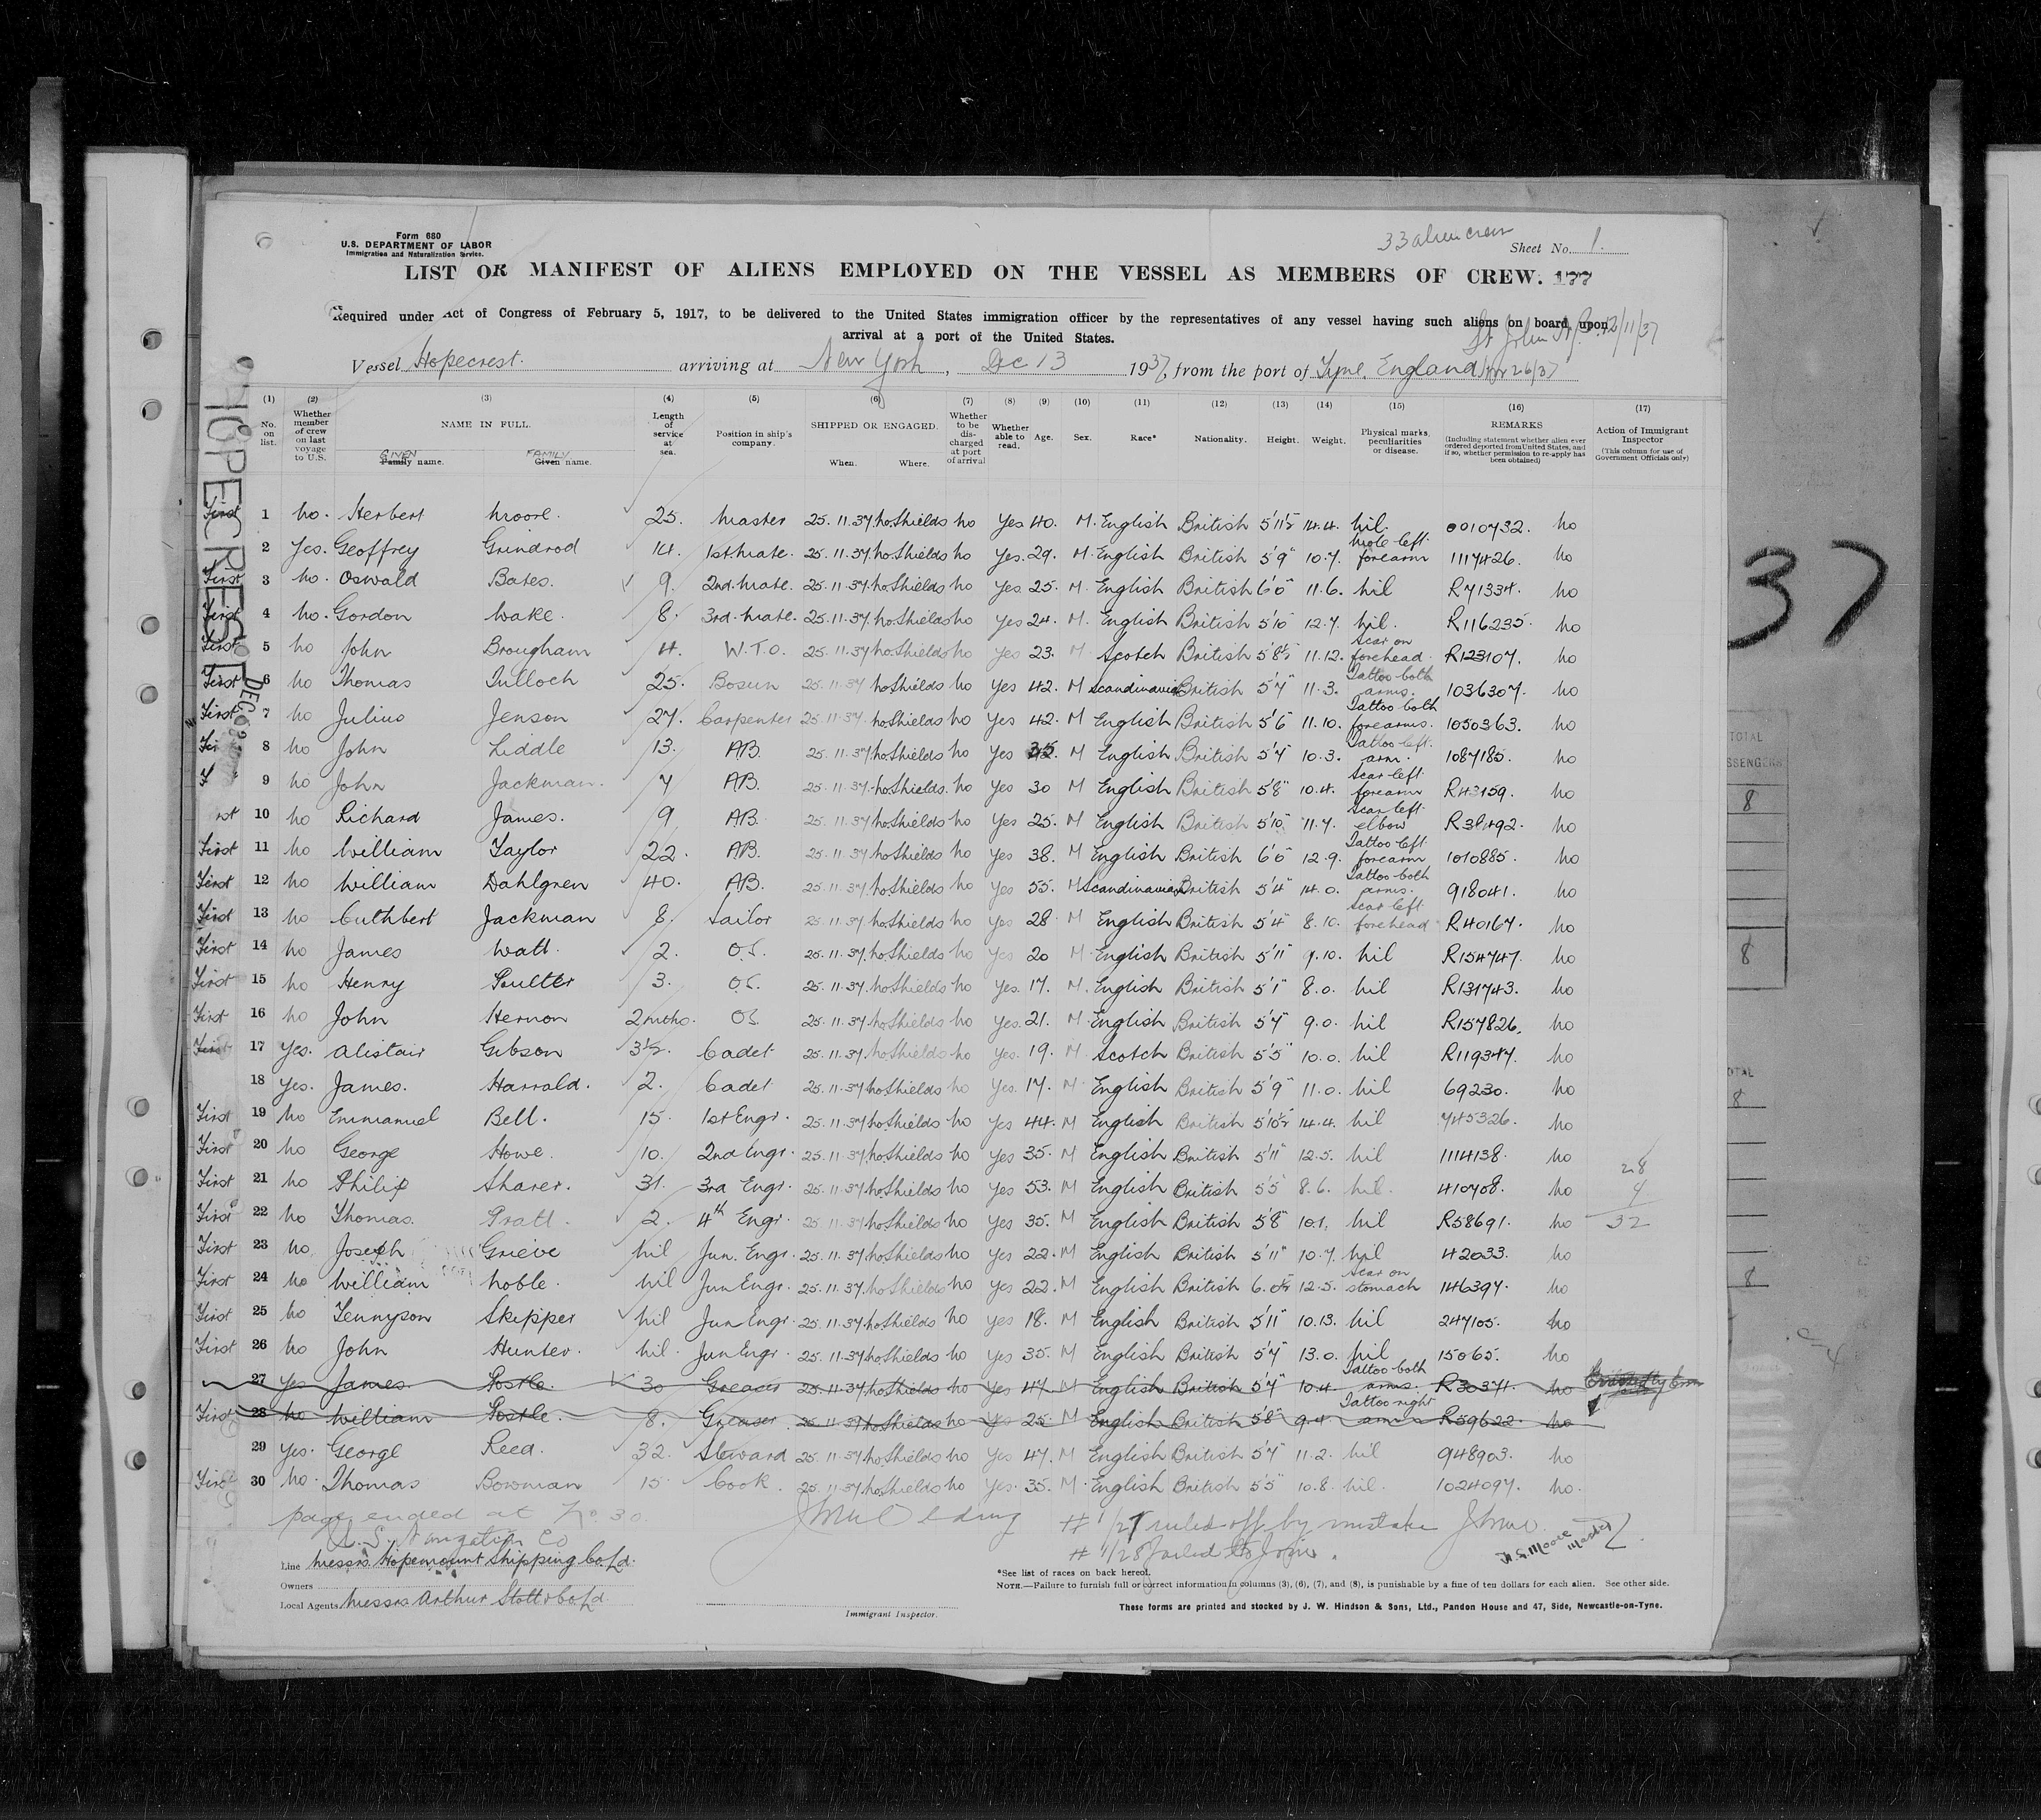 Form 680
U.S. DEPARTMENT OF LABOR
Immigration and Naturalization Service.
33 alien crew
Sheet No. 1.
LIST OR MANIFEST OF ALIENS EMPLOYED ON THE VESSEL AS MEMBERS OF CREW. 177
Required under Act of Congress of February 5, 1917, to be delivered to the United States immigration officer by the representatives of any vessel having such aliens on board upon
arrival at a port of the United States.
St John 12/11/37
Vessel Hopecrest. arriving at New York, Dec 13 1937, from the port of Tyne, England Nov 26/37
(1) No. on list.
(2) Whether member of crew on last voyage to U.S.
(3) NAME IN FULL. GIVEN Family name. FAMILY Given name.
(4) Length of service at sea.
(5) Position in ship's company.
(6) SHIPPED OR ENGAGED. When. Where.
(7) Whether to be discharged at port of arrival
(8) Whether able to read.
(9) Age.
(10) Sex.
(11) Race*
(12) Nationality.
(13) Height.
(14) Weight.
(15) Physical marks, peculiarities or disease.
(16) REMARKS (Including statement whether alien ever ordered deported from United States, and if so, whether permission to re-apply has been obtained)
(17) Action of Immigrant Inspector (This column for use of Government Officials only)
HOPECREST DEC
First 1 No. Herbert Moore. 25. Master 25.11.37 No.Shields No Yes 40. M. English British 5'11½ 14.4. Nil. 0010732. No
2 Yes. Geoffrey Grindrod 14. 1st Mate. 25.11.37 No.Shields No Yes. 29. M. English British 5'9" 10.7. Mole left forearm 1117426. No
First 3 No. Oswald Bates. 9. 2nd. Mate. 25.11.37 No.Shields No Yes 25. M. English British 6'0" 11.6. Nil R71334. No
First 4 No. Gordon Wake. 8. 3rd. Mate. 25.11.37 No.Shields No Yes 24. M. English British 5'10 12.7. Nil. R116235. No
First 5 No John Brougham 4. W.T.O. 25.11.37 No.Shields No Yes 23. M Scotch British 5'8½ 11.12. Scar on forehead. R123107. No
First 6 No Thomas Tulloch 25. Bosun 25.11.37 No.Shields No Yes 42. M Scandinavian British 5'7" 11.3. Tattoo both arms. 1036307. No
First 7 No Julius Jenson 27. Carpenter 25.11.37 No.Shields No Yes 42. M English British 5'6" 11.10. Tattoo both forearms. 1050363. No
8 No John Liddle 13. AB. 25.11.37 No.Shields No Yes 35. M English British 5'7" 10.3. Tattoo left arm. 1087185. No
9 No John Jackman. 7 AB. 25.11.37 No.Shields. No Yes 30 M English British 5'8" 10.4. Scar left forearm R43159. No
10 No Richard James. 9 AB. 25.11.37 No.Shields No Yes 25. M English British 5'10" 11.7. Scar left elbow No
First 11 No William Taylor 22. AB. 25.11.37 No.Shields No Yes 38. M English British 6'0" 12.9. Tattoo left forearm 1010885. No
First 12 No William Dahlgren 40. AB. 25.11.37 No.Shields No Yes 55. M Scandinavian British 5'4" 14.0. Tattoo both arms. 918041. No
First 13 No Cuthbert Jackman 8. Sailor 25.11.37 No.Shields No Yes 28. M English British 5'4" 8.10. Scar left forehead R40167. No
First 14 No James Watt. 2. O.S. 25.11.37 No.Shields No Yes 20 M. English British 5'11" 9.10. Nil R154747. No
First 15 No Henry Poulter 3. O.S. 25.11.37 No.Shields No Yes. 17. M. English British 5'1" 8.0. Nil R131743. No
First 16 No John Hernon 2 mths. OS. 25.11.37 No.Shields No Yes. 21. M. English British 5'7" 9.0. Nil R157826. No
First 17 Yes. Alistair Gibson 3½. Cadet 25.11.37 No.Shields No Yes. 19. M. Scotch British 5'5" 10.0. Nil R119347. No
18 Yes. James. Harrald. 2. Cadet 25.11.37 No.Shields No Yes. 17. M. English British 5'9" 11.0. Nil 69230. No
First 19 No Emmanuel Bell. 15. 1st Engr. 25.11.37 No.Shields No Yes 44. M English British 5'10½ 14.4. Nil 745326. No
First 20 No George Howe. 10. 2nd Engr. 25.11.37 No.Shields No Yes 35. M English British 5'11" 12.5. Nil 1114138. No
First 21 No Philip Sharer. 31. 3rd Engr. 25.11.37 No.Shields No Yes 53. M English British 5'5" 8.6. Nil. 410708. No 28
First 22 No Thomas. Pratt. 2. 4th Engr. 25.11.37 No.Shields No Yes 35. M English British 5'8" 10.1. Nil R58691. No 4 32
First 23 No. Joseph Grieve Nil Jun. Engr. 25.11.37 No.Shields No Yes 22. M English British 5'11" 10.7. Nil 42033. No
First 24 No William Noble. Nil Jun Engr. 25.11.37 No.Shields No Yes 22. M English British 6.0½ 12.5. Scar on stomach 146397. No
First 25 No Tennyson Skipper Nil Jun Engr. 25.11.37 No.Shields No Yes 18. M English British 5'11" 10.13. Nil 247105. No
First 26 No John Hunter. Nil. Jun Engr. 25.11.37 No.Shields No Yes 35. M English British 5'7" 13.0. Nil 15065. No
27 Yes James. Postle. 30 Greaser 25.11.37 No.Shields No Yes 47 M English British 5'7" 10.4 Tattoo both arms. R30371. No
First 28 No William Postle. 8. Greaser 25.11.37 No.Shields No Yes 25. M English British 5'8" 9.4 Tattoo right arm R59622. No
29 Yes. George Reed. 32. Steward 25.11.37 No.Shields No Yes 47. M English British 5'7" 11.2. Nil 948903. No
First 30 No. Thomas Bowman 15. Cook. 25.11.37 No.Shields No Yes. 35. M. English British 5'5" 10.8. Nil. 1024097. No.
page ended at No 30.
# 1/27 ruled off by mistake
# 1/28 Failed to Join.
H.S. Moore Master
Navigation Co
Line Messrs Hopemount Shipping Co. Ld.
Owners
Local Agents Messrs Arthur Stott & Co. Ld.
Immigrant Inspector.
*See list of races on back hereof.
NOTE.—Failure to furnish full or correct information in columns (3), (6), (7), and (8), is punishable by a fine of ten dollars for each alien. See other side.
These forms are printed and stocked by J. W. Hindson & Sons, Ltd., Pandon House and 47, Side, Newcastle-on-Tyne.
37
TOTAL
8
8
8
8